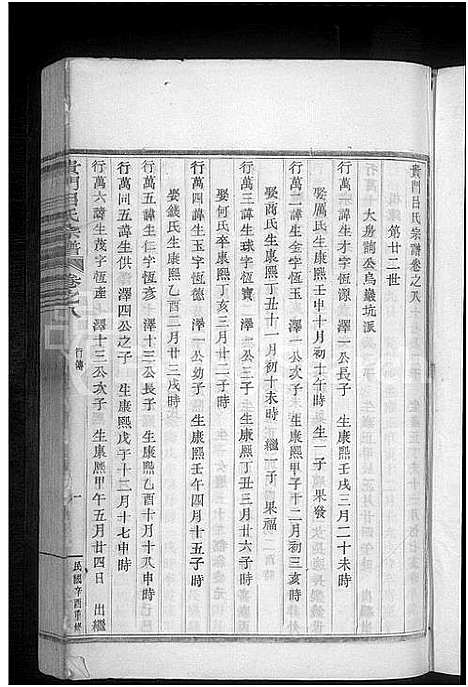 貴門呂氏宗譜卷之八
第廿二世
大房諧公烏巖坑派
行萬一諱生才字恆源 澤一公長子 生康熙壬戌三月二十未時
娶厲氏生康熙壬申十月初十午時 生一子 果發
行萬二諱生金字恆玉 澤一公次子 生康熙甲子十二月初三亥時
娶商氏生康熙丁丑十一月初十未時 繼一子 果福
行萬三諱生球字恆寶 澤一公三子 生康熙丁丑三月廿六子時
娶何氏卒康熙丁亥三月廿二子時
行萬四諱生玉字恆德 澤一公幼子 生康熙壬午四月十五子時
娶錢氏生康熙乙酉二月廿三戌時
行萬五諱生仁字恆彥 澤十三公長子 生康熙乙酉十月十八申時
行萬同五諱生供 澤四公之子 生康熙戊子十二月十七申時
行萬六諱生茂字恆產 澤十三公次子 生康熙甲午五月廿四日 出繼
貴門呂氏宗譜 卷之八
行傳
一
民國辛酉重修